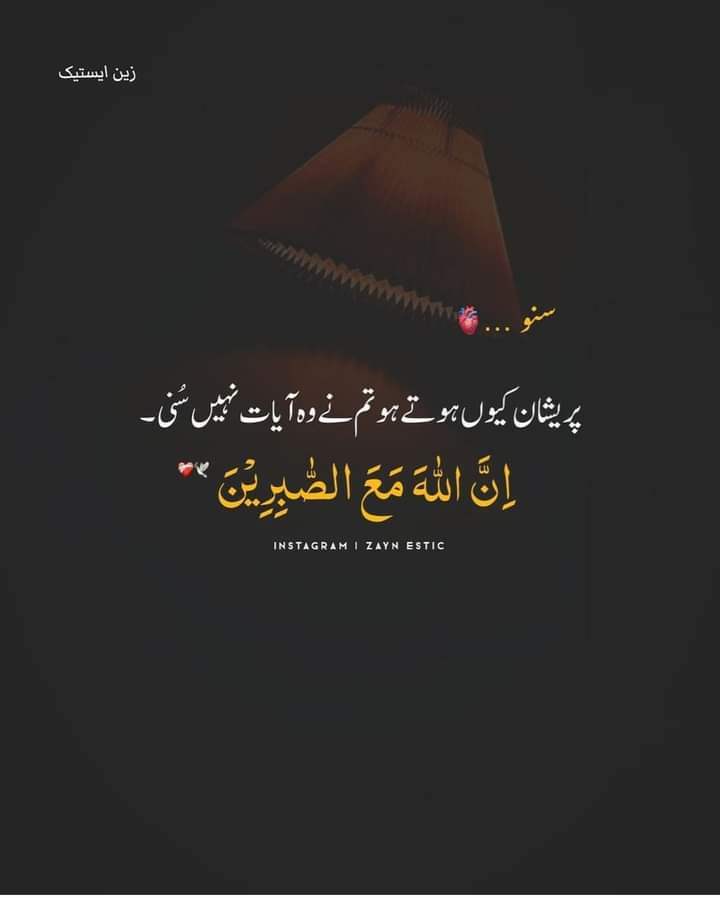 زین ایستیک
سنو ...🫀
پریشان کیوں ہوتے ہو تم نے وہ آیات نہیں سُنی۔
اِنَّ اللّٰهَ مَعَ الصّٰبِرِیْنَ 🕊️❤️‍🩹
INSTAGRAM | ZAYN ESTIC